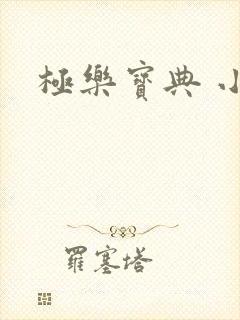 極樂寶典 小
羅塞塔